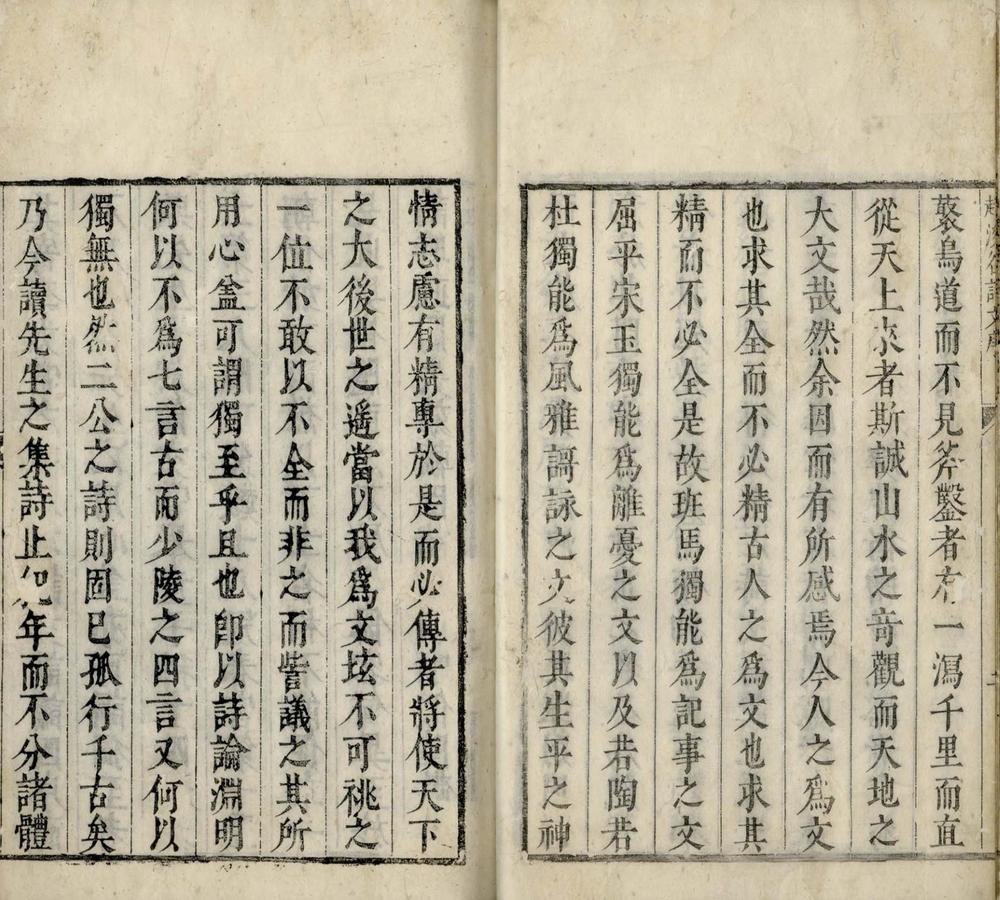 蓑鳥道而不見斧鑿者方一瀉千里而直
從天上来者斯誠山水之竒觀而天地之
大文哉然余因而有所感焉今人之爲文
也求其全而不必精古人之爲文也求其
精而不必全是故班馬獨能爲記事之文
屈平宋玉獨能爲離憂之文以及若陶若
杜獨能爲風雅謌詠之文彼其生平之神
情志慮有精專於是而必傳者將使天下
之大後世之遥當以我爲文垓不可祧之
一位不敢以不全而非之而訾議之其所
用心盒可謂獨至乎且也卽以詩論淵明
何以不爲七言古而少陵之四言又何以
獨無也然二公之詩則固已孤行千古矣
乃今讀先生之集詩止如年而不分諸體